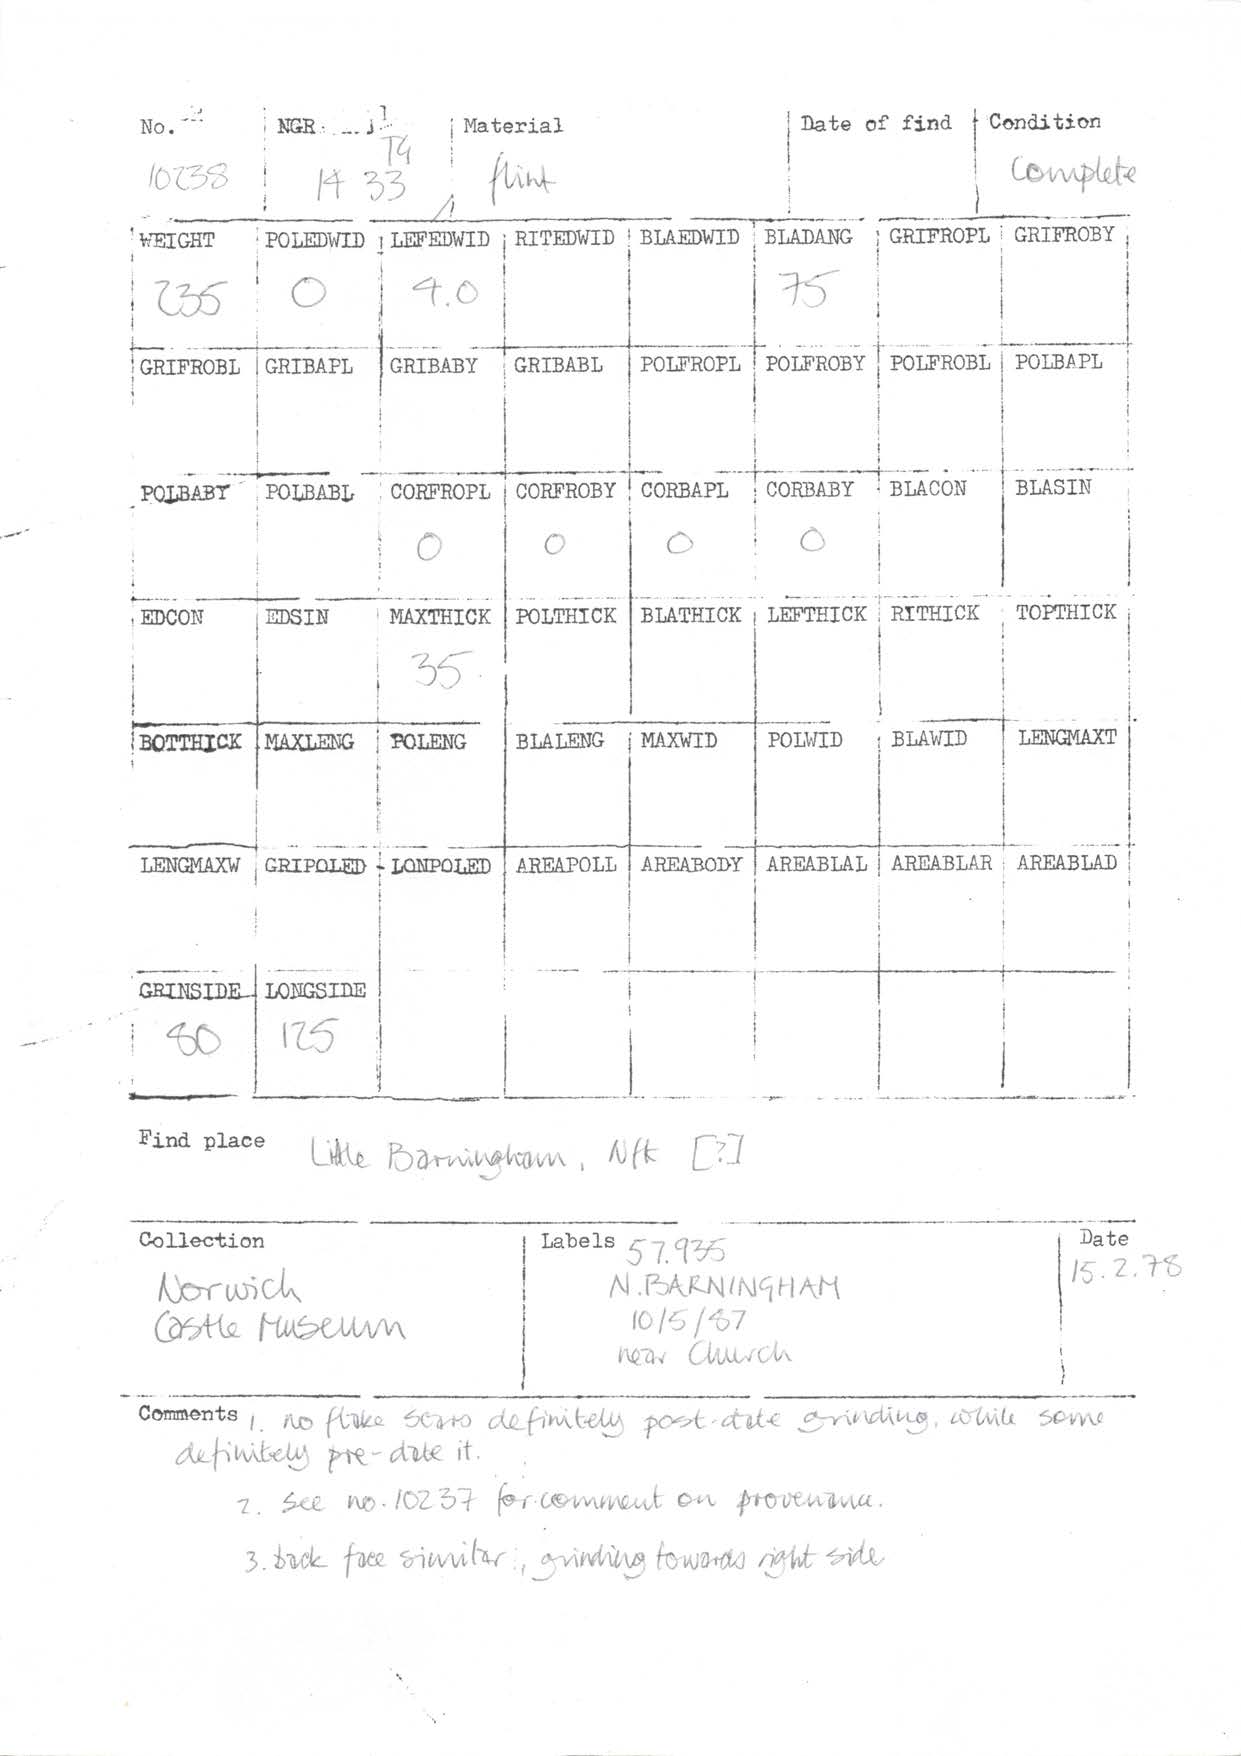 No. NGR. Material Date of find Condition
TG
10238 14 33 flint Complete
WEIGHT POLEDWID LEFEDWID RITEDWID BLAEDWID BLADANG GRIFROPL GRIFROBY
235 0 4.0 75
GRIFROBL GRIBAPL GRIBABY GRIBABL POLFROPL POLFROBY POLFROBL POLBAPL
POLBABY POLBABL CORFROPL CORFROBY CORBAPL CORBABY BLACON BLASIN
0 0 0 0
EDCON EDSIN MAXTHICK POLTHICK BLATHICK LEFTHICK RITHICK TOPTHICK
35
BOTTHICK MAXLENG POLENG BLALENG MAXWID POLWID BLAWID LENGMAXT
LENGMAXW GRIPOLED LONPOLED AREAPOLL AREABODY AREABLAL AREABLAR AREABLAD
GRINSIDE LONGSIDE
80 125
Find place Little Barningham, Nfk [?]
Collection Labels 57.935 Date
Norwich N.BARNINGHAM 15.2.78
Castle Museum 10/5/87
near Church
Comments 1. no flake scars definitely post-date grinding, while some
definitely pre-date it.
2. See no. 10237 for comment on provenance.
3. back face similar; grinding towards right side